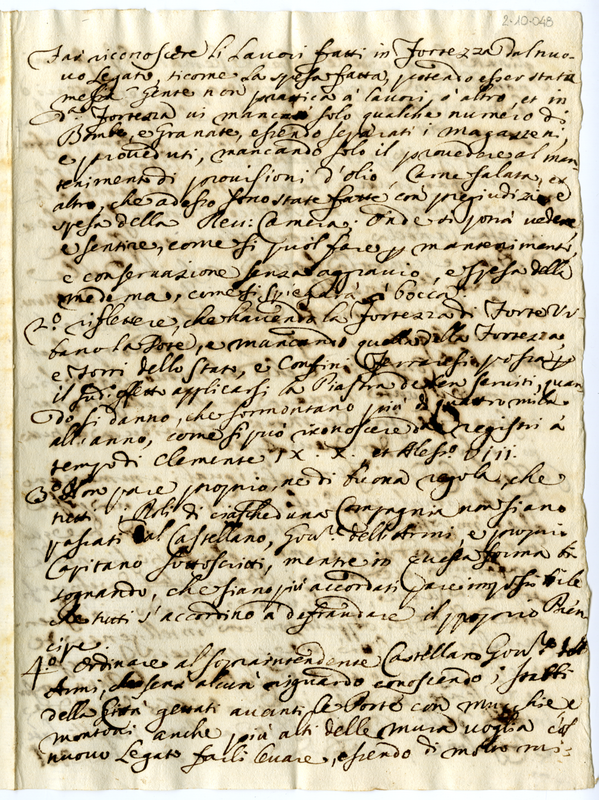 2-10-048
Far riconoscere li Lavori fatti in Fortezza dal nuo-
vo Legato, ticome la spesa fatta, potendo esser stata
messa gente non prattica à lavori, ò altro, et in
d.ª Fortezza vi mancano solo qualche numero di
Bombe, e Granate, essendo separati i magazzeni,
e proveduti, mancando solo il provedere al man-
tenimento di provisioni d'olio, Carne salata, et
altro, che adesso sono state fatte con pregiudizio e
spesa della Reu: Camera; onde si potrà vedere,
e sentire, come si può fare p mantenimenti
e conservazione senza aggravio, e spesa della
medema, come si spiegarà à bocca.
2.º riflettere, che havendo la Fortezza di Forte Vr-
bano la Dote, e mancando quella della Fortezza,
e Torri dello Stato, e Confini Ferraresi, possa p
il sud.º effetto applicarsi la Piastra de ben serviti, quan-
do si danno, che sormontano più di quattro mila
all'anno, come si può riconoscere da registri à
tempo di Clemente IX. X. et Aless.º VIII.
3.º Non pare proprio, ne di buona regola, che
tutti i Roli di ciascheduna Compagnia non siano
passati dal Castellano, Gov.re dell'Armi, e proprio
Capitano sottoscritti, mentre in questa forma bi-
sognando, che siano più accordati pare impossibile
che tutti s'accordino a defraudare il proprio Prin-
cipe.
4.º Ordinare al sopraintendente Castellano Gov.re dell'
Armi, che senz'alcun riguardo conoscendo i
della Città gettati avanti le Porte con mucchie, e
montoni anche più alti delle mura voglia col
nuovo Legato farli levare, essendo di molto